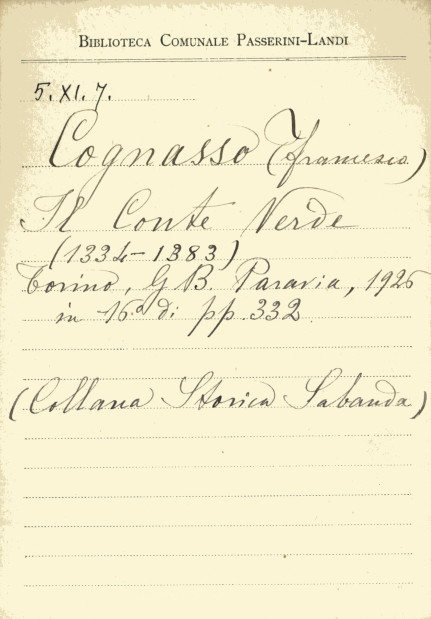 BIBLIOTECA COMUNALE PASSERINI-LANDI
5. XI. 7.
Cognasso (Francesco)
Il Conte Verde
(1334-1383)
Torino, G B. Paravia, 1926
in 16° di pp. 332
(Collana Storica Sabauda)